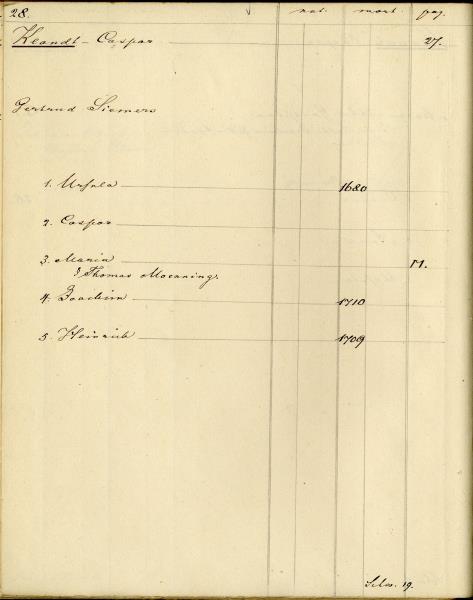 28. nat. mort. pag.
Klandt - Caspar 27.
Gertrud Siemers
1. Ursula 1680
2. Caspar
3. Maria 17.
Thomas Moenning.
4. Joachim 1710
5. Heinrich 1709
19.